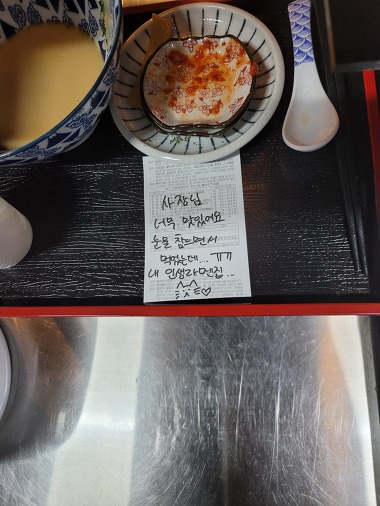 사장님
너무 맛있어요
눈물 참으면서
먹었는데... ㅠㅠ
내 인생라멘집..